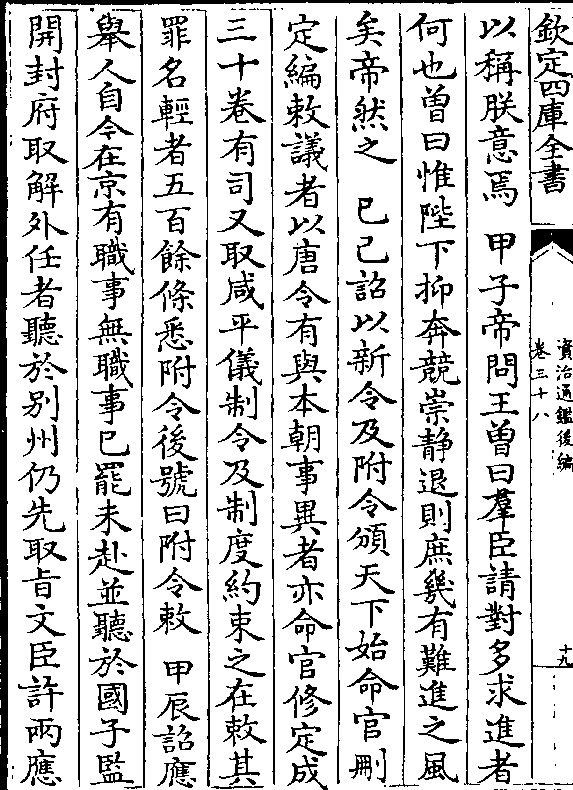 欽定四庫全書
資治通鑑後編
卷三十八
十九
以稱朕意焉　甲子帝問王曾曰羣臣請對多求進者
何也曾曰惟陛下抑奔競崇静退則庶幾有難進之風
矣帝然之　已己詔以新令及附令頒天下始命官刪
定編敕議者以唐令有與本朝事異者亦命官修定成
三十卷有司又取咸平儀制令及制度約束之在敕其
罪名輕者五百餘條悉附令後號曰附令敕　甲辰詔應
舉人自今在京有職事無職事已罷未赴並聽於國子監
開封府取解外任者聽於别州仍先取旨文臣許兩應